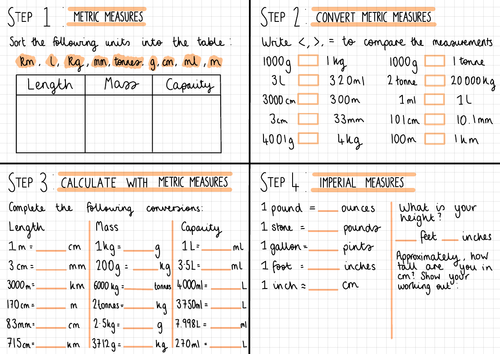 STEP 1: METRIC MEASURES
Sort the following units into the table:
Km, l, Kg, mm, tonnes, g, cm, ml, m
Length Mass Capacity
STEP 2: CONVERT METRIC MEASURES
Write <, >, = to compare the measurements
1000g 1kg 1000g 1 tonne
3L 320ml 2 tonne 20000kg
3000cm 300m 1ml 1L
3cm 33mm 101cm 10.1mm
4001g 4kg 100m 1km
STEP 3: CALCULATE WITH METRIC MEASURES
Complete the following conversions:
Length Mass Capacity
1m = ____ cm 1kg = ____ g 1L = ____ ml
3cm = ____ mm 200g = ____ kg 3.5L = ____ ml
3000m = ____ km 6000kg = ____ tonnes 4000ml = ____ L
170cm = ____ m 2tonnes = ____ kg 3750ml = ____ L
83mm = ____ cm 2.5kg = ____ g 7.998L = ____ ml
715cm = ____ km 3712g = ____ kg 270ml = ____ L
STEP 4: IMPERIAL MEASURES
1 pound = ____ ounces
1 stone = ____ pounds
1 gallon = ____ pints
1 foot = ____ inches
1 inch = ____ cm
What is your
height?
____ feet ____ inches
Approximately, how
tall are you in
cm? Show your
working out.